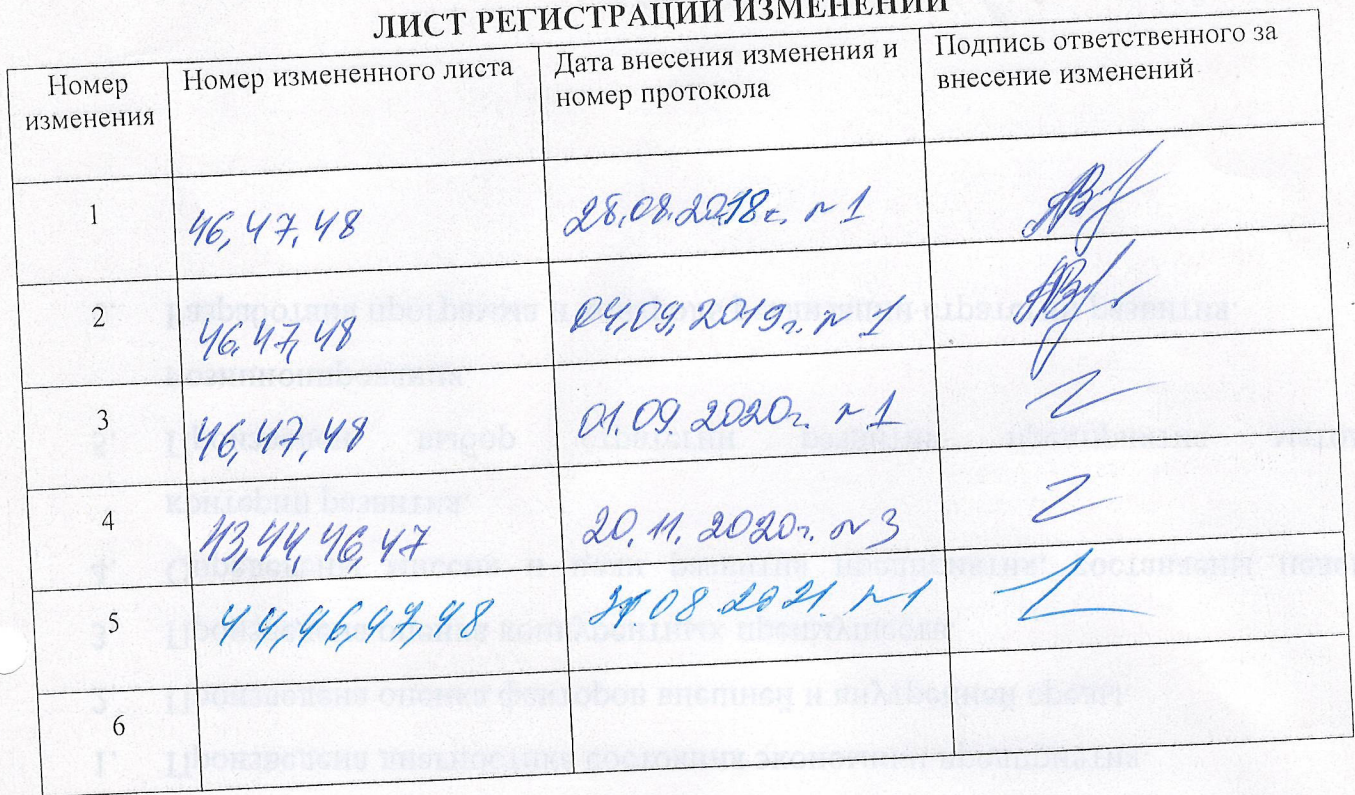 ЛИСТ РЕГИСТРАЦИИ ИЗМЕНЕНИЙ
Номер изменения
Номер измененного листа
Дата внесения изменения и номер протокола
Подпись ответственного за внесение изменений
1
46, 47, 48
28.08.2018г. №1
2
46, 47, 48
04.09.2019г. №1
3
46, 47, 48
01.09.2020г. №1
4
43, 44, 46, 47
20.11.2020г. №3
5
44, 46, 47, 48
31.08.2021. №1
6